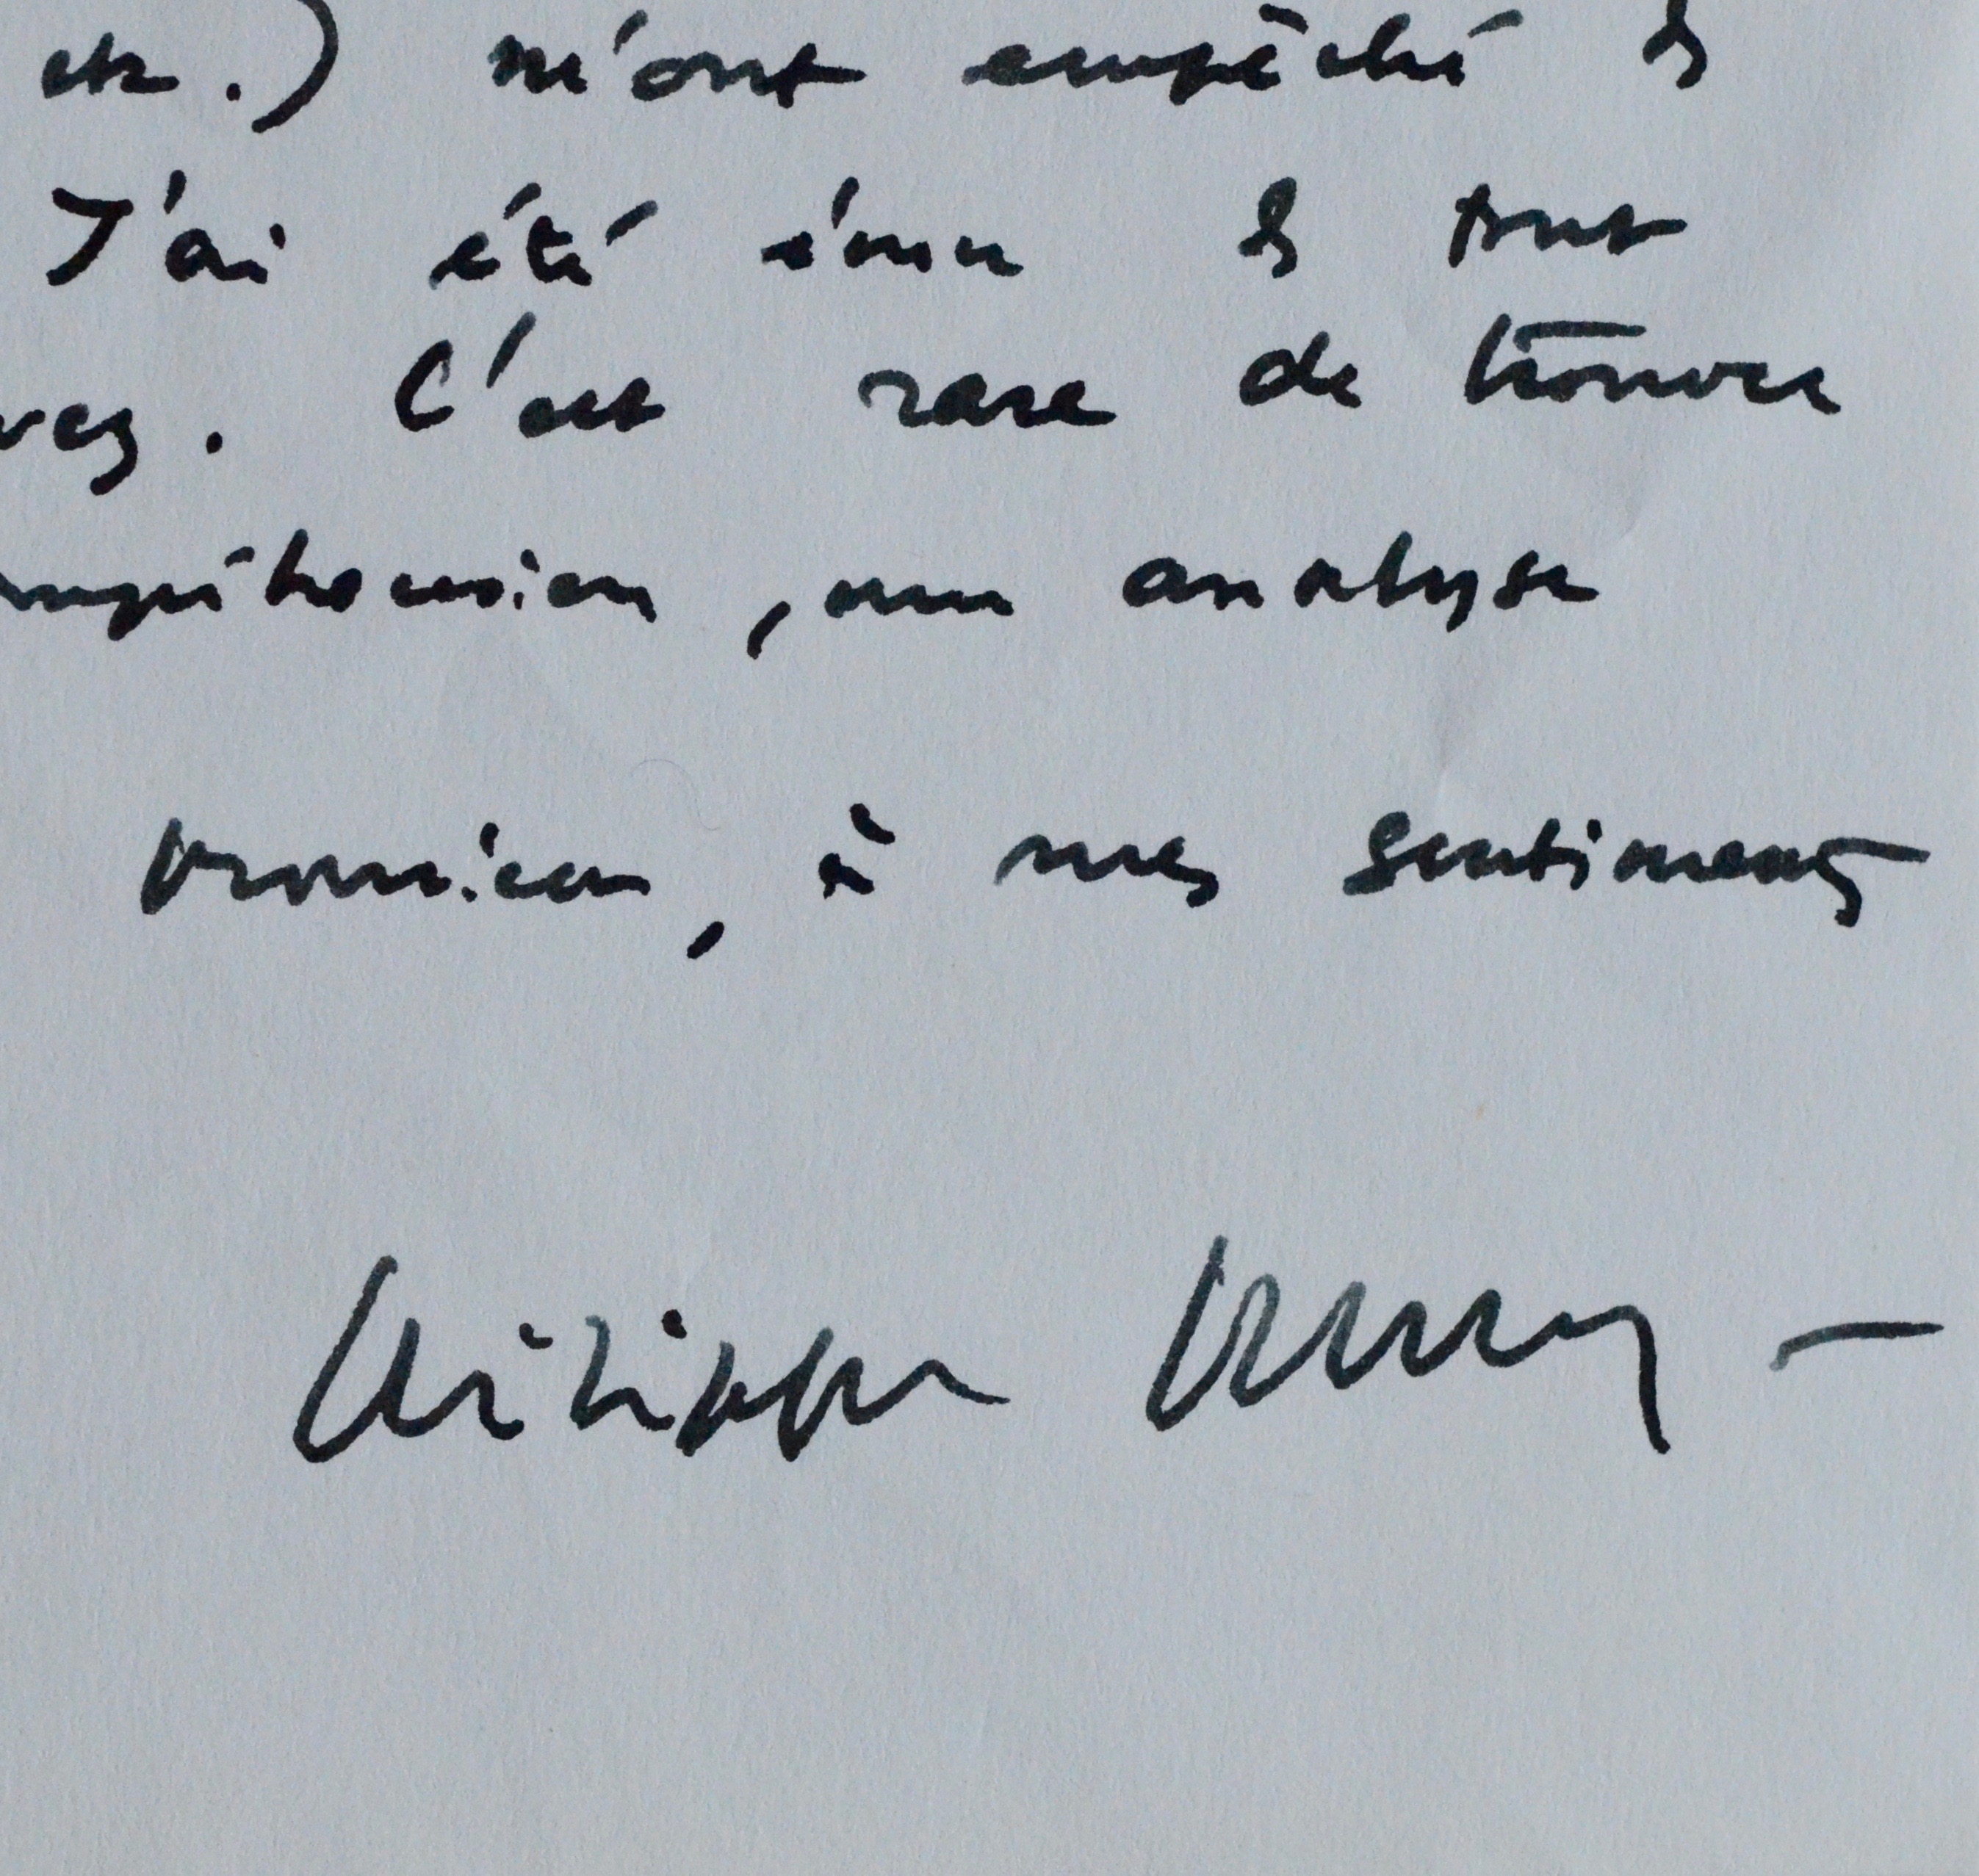 etc.) m'ont empêché de
J'ai été ému de tout
vez. C'est rare de trouver
mpréhension, une analyse
Monsieur, à mes sentiments
Philippe